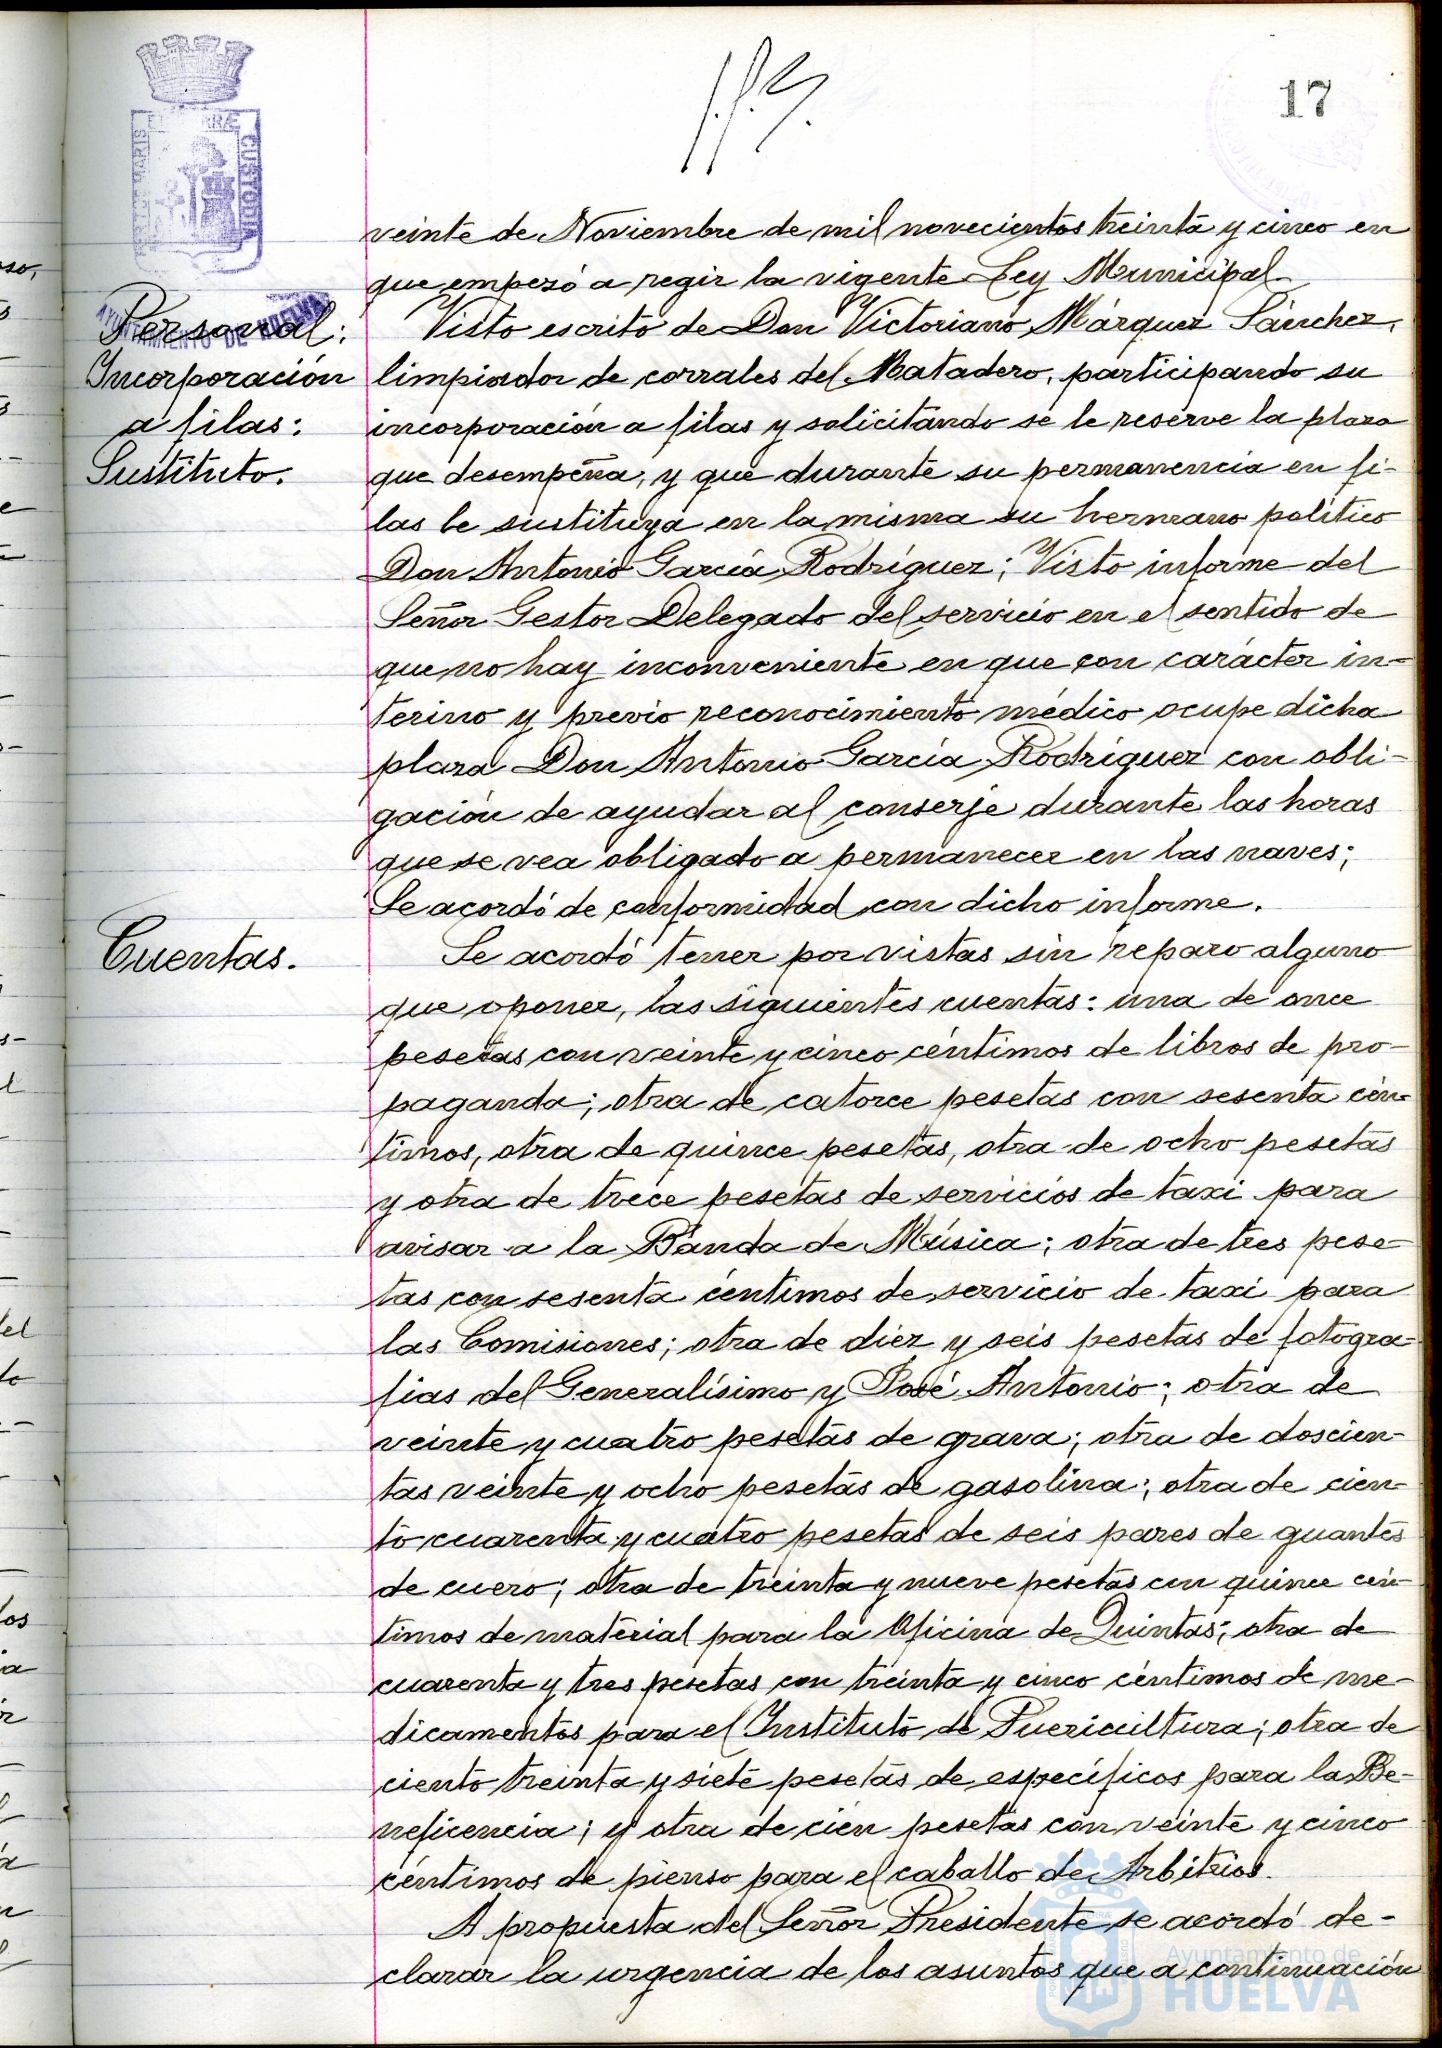 17
veinte de Noviembre de mil novecientos treinta y cinco en
que empezó a regir la vigente Ley Municipal.
Personal:
Incorporación
a filas:
Sustituto.
Visto escrito de Don Victoriano Márquez Sánchez,
limpiador de corrales del Matadero, participando su
incorporación a filas y solicitando se le reserve la plaza
que desempeña, y que durante su permanencia en fi-
las le sustituya en la misma su hermano político
Don Antonio García Rodríguez; Visto informe del
Señor Gestor Delegado del servicio en el sentido de
que no hay inconveniente en que con carácter in-
terino y previo reconocimiento médico ocupe dicha
plaza Don Antonio García Rodríguez con obli-
gación de ayudar al conserje durante las horas
que se vea obligado a permanecer en las naves;
Se acordó de conformidad con dicho informe.
Cuentas.
Se acordó tener por vistas sin reparo alguno
que oponer, las siguientes cuentas: una de once
pesetas con veinte y cinco céntimos de libros de pro-
paganda; otra de catorce pesetas con sesenta cén-
timos, otra de quince pesetas, otra de ocho pesetas
y otra de trece pesetas de servicios de taxi para
avisar a la Banda de Música; otra de tres pese-
tas con sesenta céntimos de servicio de taxi para
las Comisiones; otra de diez y seis pesetas de fotogra-
fias del Generalísimo y José Antonio; otra de
veinte y cuatro pesetas de grava; otra de doscien-
tas veinte y ocho pesetas de gasolina; otra de cien-
to cuarenta y cuatro pesetas de seis pares de guantes
de cuero; otra de treinta y nueve pesetas con quince cén-
timos de material para la Oficina de Quintas; otra de
cuarenta y tres pesetas con treinta y cinco céntimos de me-
dicamentos para el Instituto de Puericultura; otra de
ciento treinta y siete pesetas de específicos para la Be-
neficencia; y otra de cien pesetas con veinte y cinco
céntimos de pienso para el caballo de Arbitrios.
A propuesta del Señor Presidente se acordó de-
clarar la urgencia de los asuntos que a continuación
AYUNTAMIENTO DE HUELVA
CUSTODIA
Ayuntamiento de
HUELVA